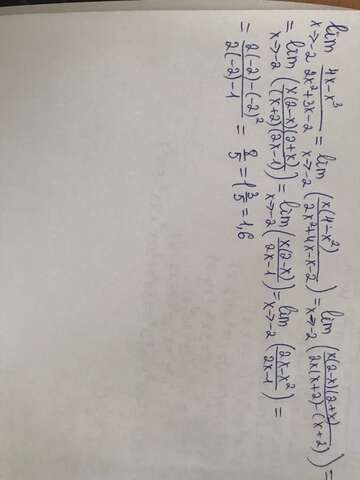 lim x→-2 (4x-x³)/(2x²+3x-2) = lim x→-2 (x(4-x²)/(2x²+4x-x-2)) = lim x→-2 (x(2-x)(2+x)/(2x(x+2)-(x+2))) =
= lim x→-2 (x(2-x)(2+x)/((x+2)(2x-1))) = lim x→-2 (x(2-x)/(2x-1)) = lim x→-2 ((2x-x²)/(2x-1)) =
= (2(-2)-(-2)²)/(2(-2)-1) = 8/5 = 1 3/5 = 1,6